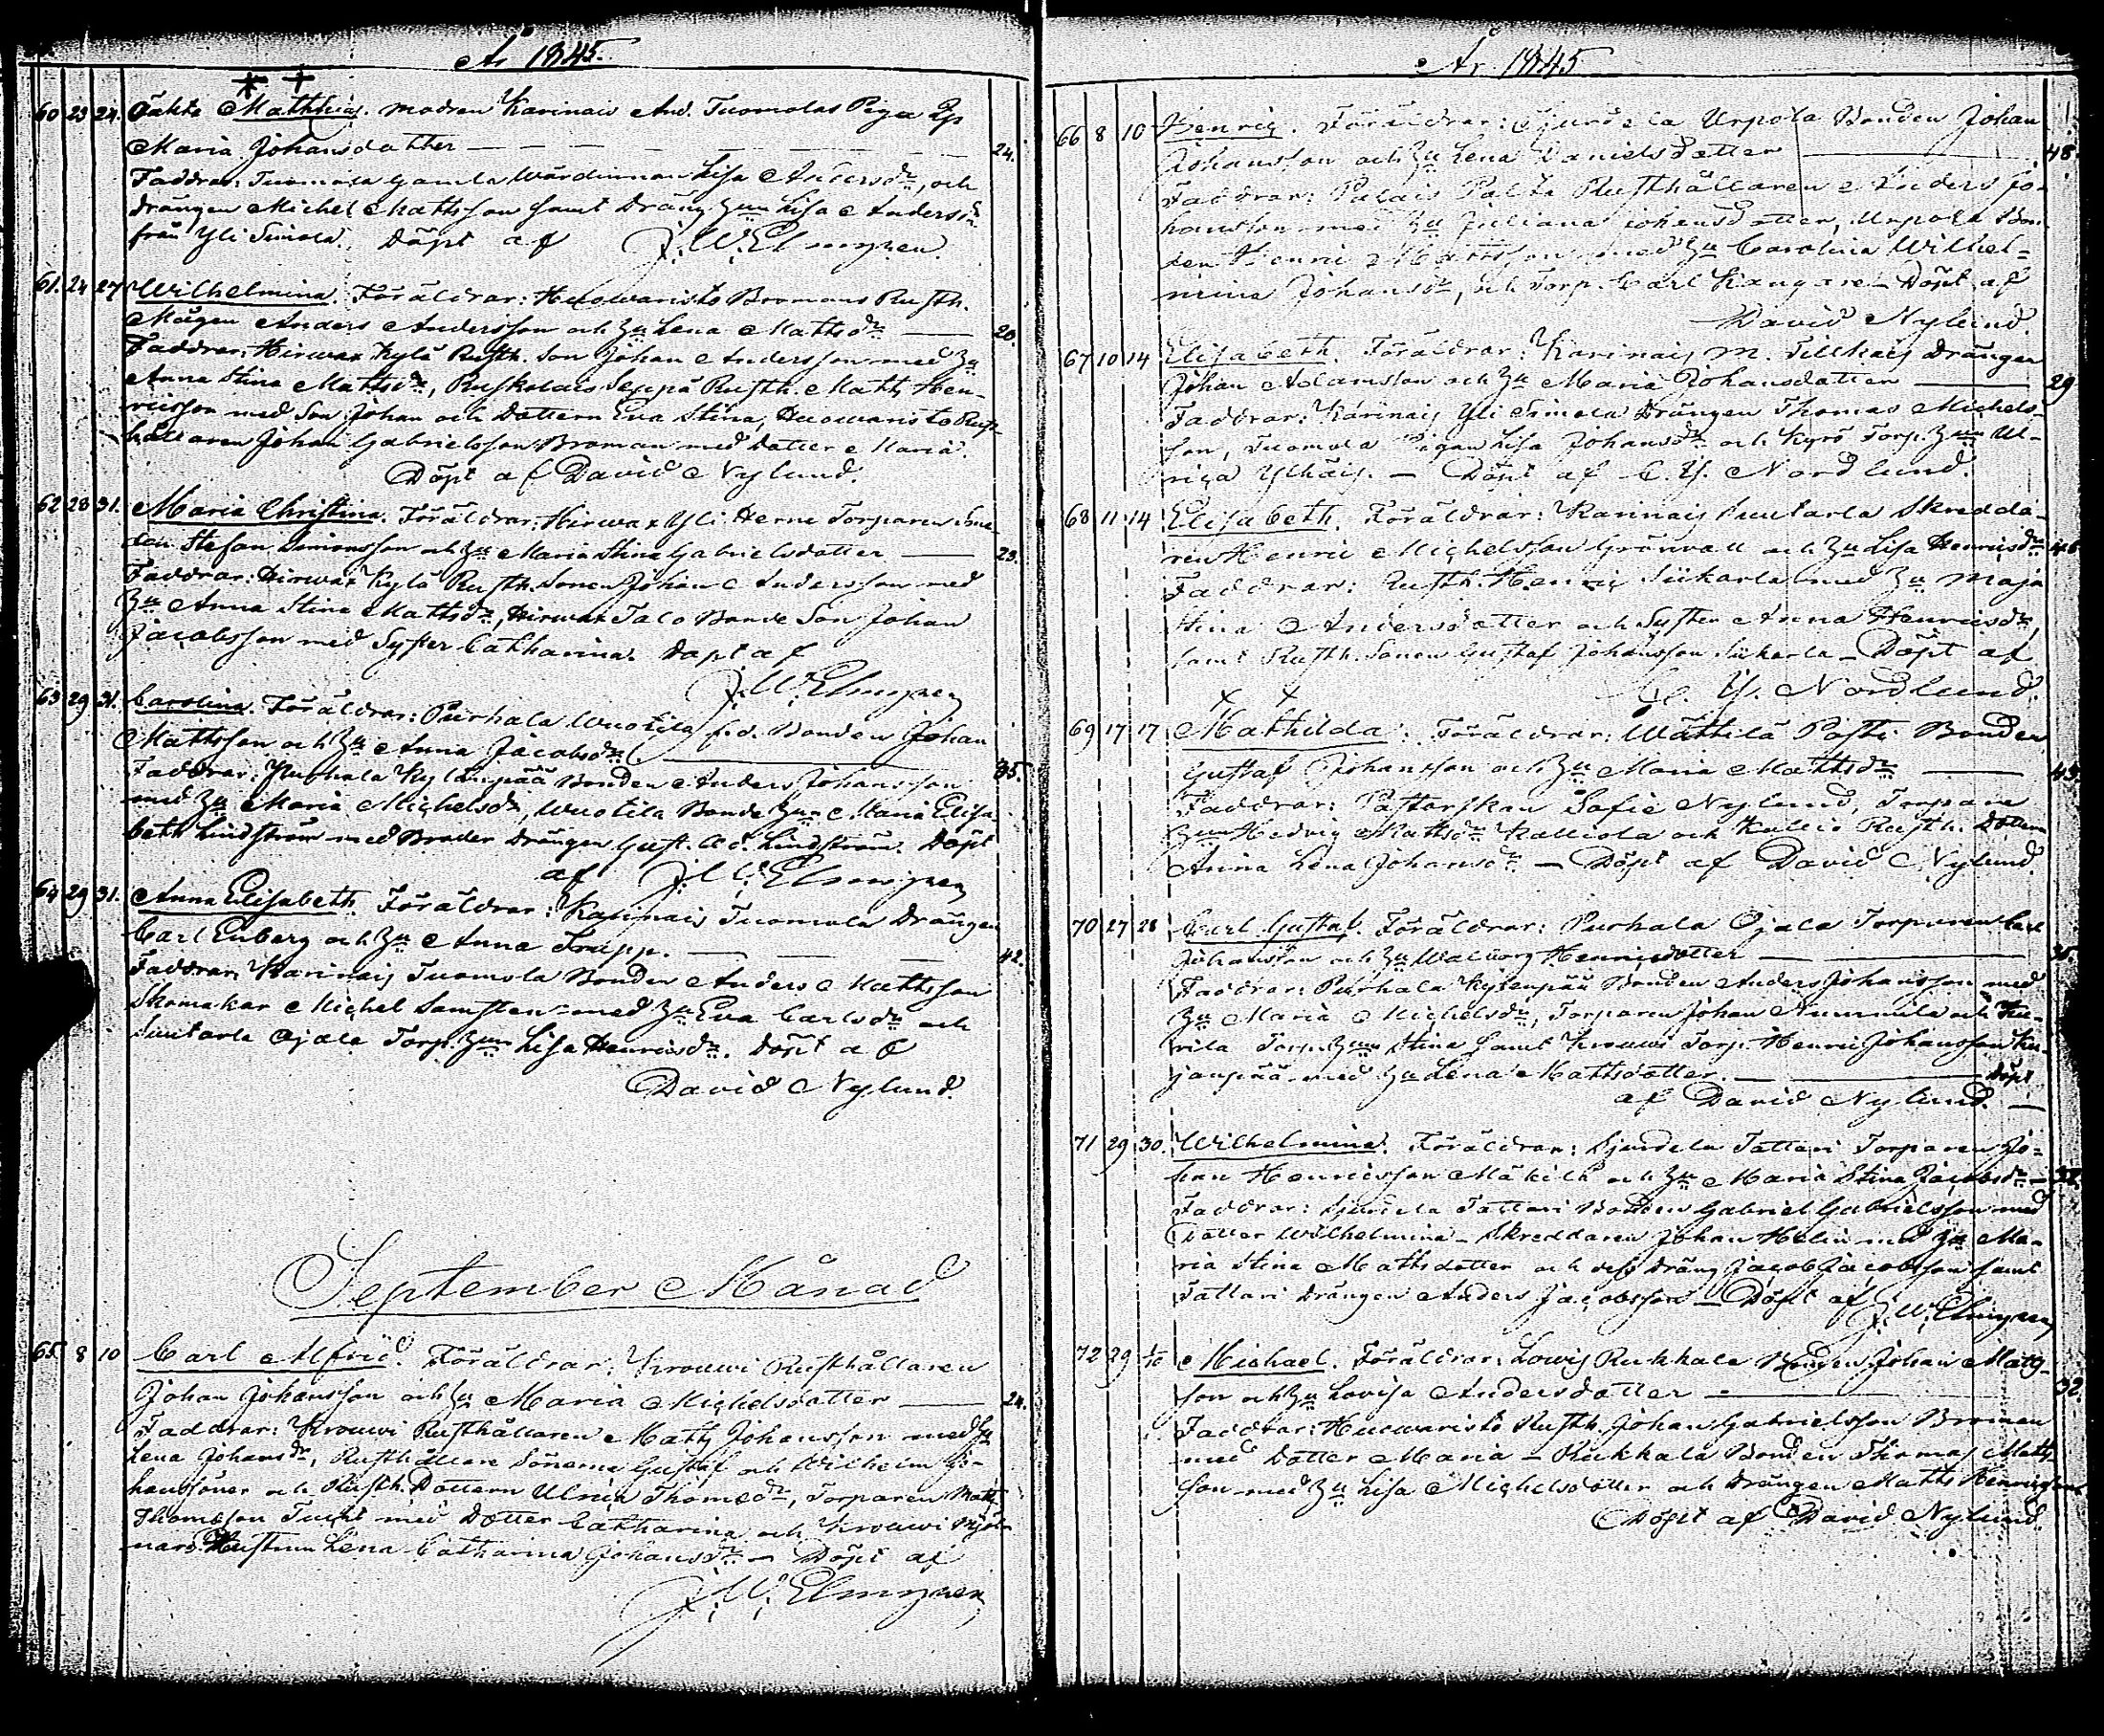 År 1845.
60 23 24. Oäkta Matthias. modren Karinais And. Tuomolas Piga
Maria Johansdotter 24.
Faddrar: Tuomola gamla Wärdinnan Lisa Andersdr, och
drängen Michel Mattsson samt Dräng Lisa Andersdr
från Yli Simola. Döpt af J. W. Elmgren.
61. 24 27 Wilhelmina. Föräldrar: Huowaristo Bromans Rusth.
Mågen Anders Andersson och Lena Mattsdr 20.
Faddrar: Hirwax Kylä Rusth. Son Johan Andersson med
Anna Stina Mattsdr, Ruskolais Seppä Rusth. Matts Hen-
ricsson med Son Johan och Dottern Eva Stina, Huowaristo Rust-
hållaren Johan Gabrielsson Broman med dotter Maria.
Döpt af David Nylund.
62 28 31. Maria Christina. Föräldrar: Hirwax Yli Herne Torparen
Stefan Simonsson och Maria Stina Gabrielsdotter 23.
Faddrar: Hirwax Kylä Rusth. Sonen Johan Andersson med
Anna Stina Mattsdr, Hirwax Talo Bonde Son Johan
Jacobsson med Syster Catharina. Döpt af
J. W. Elmgren
63 29 31. Carolina. Föräldrar: Purhala Wuotila f.d. Bonden Johan
Mattsson och Anna Jacobsdr. 35.
Faddrar: Purhala Kylänpää Bonden Anders Johansson
med Maria Michelsdr, Wuotila Bonde Maria Elisa-
beth Lindström med Broder Drängen Gust. Ad. Lindström. Döpt
af J. W. Elmgren
64 29 31. Anna Elisabeth. Föräldrar: Karinais Tuomola Drängen
Carl Enberg och Anna Knapp. 42.
Faddrar: Karinais Tuomola Bonden Anders Mattsson
Skomakar Michel Samsten med Eva Carlsdr och
Suutarla Ojala Torp. Lisa Henricsdr. Döpt af
David Nylund.
September Månad
65. 8 10 Carl Alfrid. Föräldrar: Krouwi Rusthållaren
Johan Johansson och Maria Michelsdotter 24.
Faddrar: Krouwi Rusthållaren Matts Johansson med
Lena Johansdr, Rusthållare Sönerna Gustaf och Wilhelm Jo-
hanssöner och Rusth. Dottern Ulrica Thomædr, Torparen Matts
Thomasson Tuohi med Dotter Catharina och Krouwi Mjöl-
nars Hustrun Lena Catharina Johansdr - Döpt af
J. W. Elmgren
År 1845
66 8 10 Henric. Föräldrar: Urpola Bonden Johan
Johansson och Lena Danielsdotter 48.
Faddrar: Palais Rusthållaren Anders Jo-
hansson med Juliana Johansdotter, Urpola Bon-
den Henric Mattsson med Carolina Wilhel-
mina Johansdr, och Torp. Carl - Döpt af
David Nylund.
67 10 14 Elisabeth. Föräldrar: Karinais M. Tillkais Drängen
Johan Adamsson och Maria Johansdotter 29
Faddrar: Karinais Yli Simola Drängen Thomas Michels-
son, Tuomola Pigan Lisa Johansdr och Kyrö Torp. Ul-
rica - Döpt af C. Y. Nordlund.
68 11 14 Elisabeth. Föräldrar: Karinais Suutarla Skredda-
ren Henric Michelsson Grönvall och Lisa Henricsdr 46
Faddrar: Rusth. Henric Siikarla med Maja
Stina Andersdotter och Syster Anna Henricsdr,
samt Rusth. Sonen Gustaf Johansson Siikarla - Döpt af
C. Y. Nordlund.
69 17 17 Mathilda. Föräldrar: Wättilä Posti Bonden
Gustaf Johansson och Maria Mattsdr 43.
Faddrar: Pastorskan Sofie Nylund, Torpare
Hedvig Mattsdr Kalliola och Kallio Rusth. Dottern
Anna Lena Johansdr - Döpt af David Nylund.
70 27 28 Carl Gustaf. Föräldrar: Purhala Ojala Torparen Carl
Johansson och Walborg Henricsdotter 35.
Faddrar: Purhala Kylenpää Bonden Anders Johansson med
Maria Michelsdr, Torparen Johan Nummela och
Torp. Stina samt Krouwi Torp. Henric Johansson Ku-
janpää med Lena Mattsdotter. Döpt
af David Nylund.
71 29 30. Wilhelmina. Föräldrar: Tattari Torparen Jo-
han Henricsson Mäkilä och Maria Stina Jacobsdr
Faddrar: Tattari Bonden Gabriel Gabrielsson med
Dotter Wilhelmina - Skreddaren Johan Helin med Ma-
ria Stina Mattsdotter och dess Dräng Jacob Jacobsson samt
Tattari Drängen Anders Jacobsson - Döpt af J. W. Elmgren
72 29 1/10 Michael. Föräldrar: Lowis Rukkala Bonden Johan Matts-
son och Lovisa Andersdotter 32.
Faddrar: Huowaristo Rusth. Johan Gabrielsson Broman
med Dotter Maria - Rukkala Bonden Thomas Matts-
son med Lisa Michelsdotter och Drängen Matts Henricsson
Döpt af David Nylund.